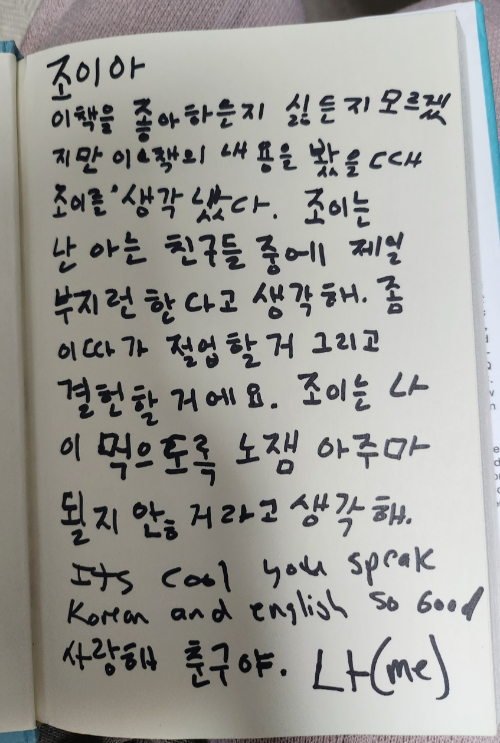 조이아
이책을 좋아하는지 싫든지모르겠
지만 이 책의 내용을 봤을 때
조이를 생각 났다. 조이는
난 아는 친구들 중에 제일
부지런 한 다고 생각해. 좀
이따가 절업할 거 그리고
결헌할 거에요. 조이는 나
이 먹으도록 노잼 아주마
될지 안 거라고 생각해.
It's cool you speak
Korean and english so Good
사랑해 춘구야. 나(me)